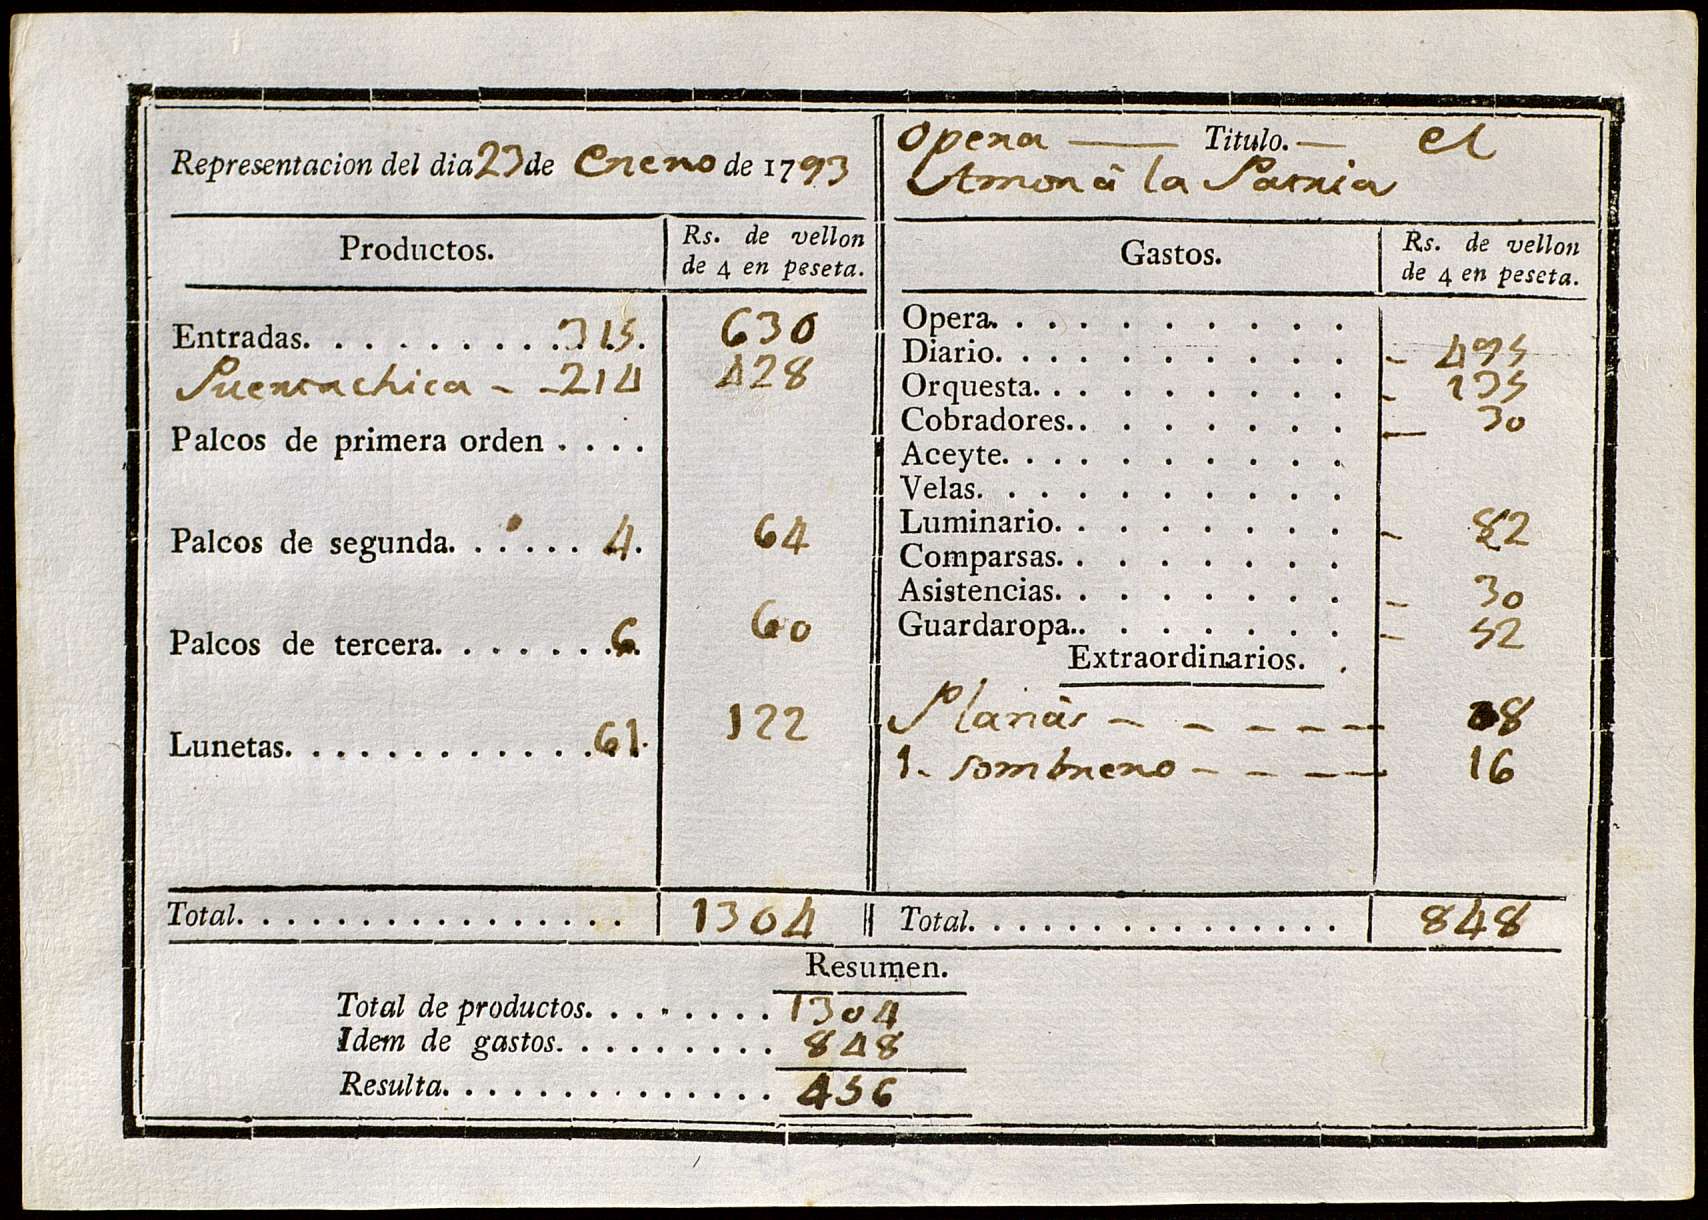 Representacion del dia 23 de Enero de 1793
Opera — Titulo. — el
Amor â la Patria
Productos.
Rs. de vellon
de 4 en peseta.
Entradas. . . . . . . . . . . . 315. 630
Puertachica - - 214 428
Palcos de primera orden . . . .
Palcos de segunda. . . . . . 4. 64
Palcos de tercera. . . . . . . 6. 60
Lunetas. . . . . . . . . . . . 61. 122
Total. . . . . . . . . . . . . . . . 1304
Gastos.
Rs. de vellon
de 4 en peseta.
Opera. . . . . . . . . .
Diario. . . . . . . . . . - 495
Orquesta. . . . . . . . . - 135
Cobradores.. . . . . . . — 30
Aceyte. . . . . . . . . .
Velas. . . . . . . . . .
Luminario. . . . . . . . - 82
Comparsas. . . . . . . .
Asistencias. . . . . . . . - 30
Guardaropa.. . . . . . . - 52
Extraordinarios.
- - - - - 8
1. sombrero - - - - 16
Total. . . . . . . . . . . . . . . . 848
Resumen.
Total de productos. . . . . . . . 1304
Idem de gastos. . . . . . . . . 848
Resulta. . . . . . . . . . . . . . 456